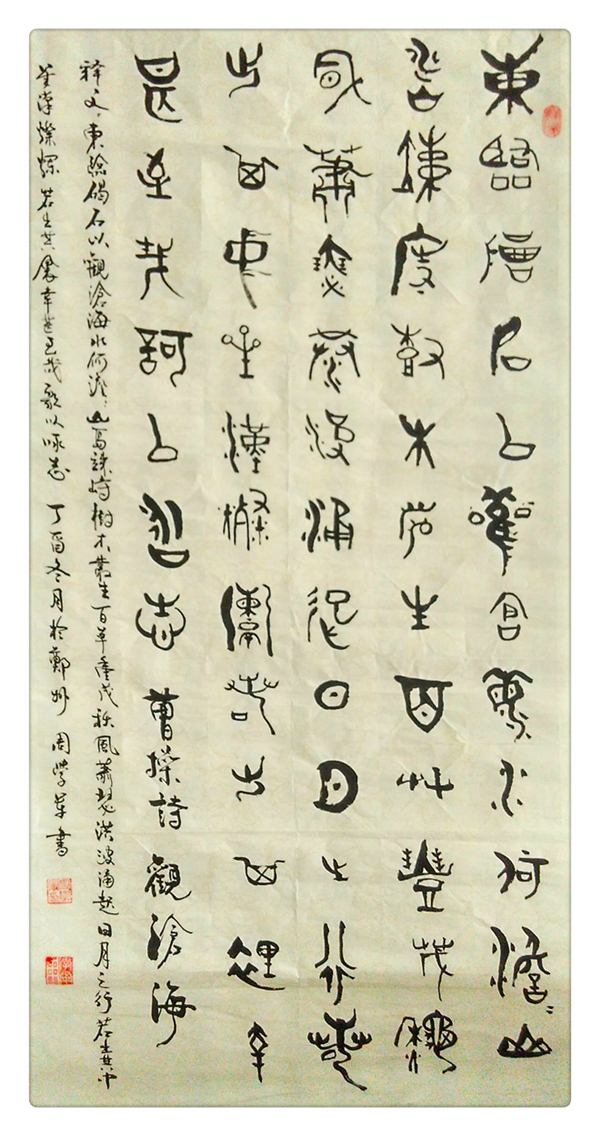 東臨碣石以觀滄海水何澹〻山
島竦峙樹木叢生百艸豐茂秋
風蕭瑟洪波涌起日月之行若
出其中星漢燦爛若出其裡幸
甚至哉歌以詠志 曹操詩觀滄海
釋文東臨碣石以觀滄海水何澹〻山島竦峙樹木叢生百草豐茂秋風蕭瑟洪波涌起日月之行若出其中
星漢燦爛若出其裏幸甚至哉歌以咏志 丁酉冬月於鄭州 周學軍書